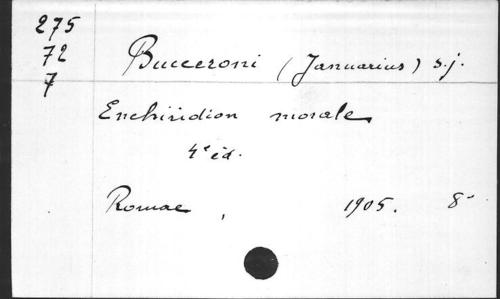 275
72
7
Bucceroni (Januarius) s.j.
Enchiridion morale
4e éd.
Romae, 1905. 8°